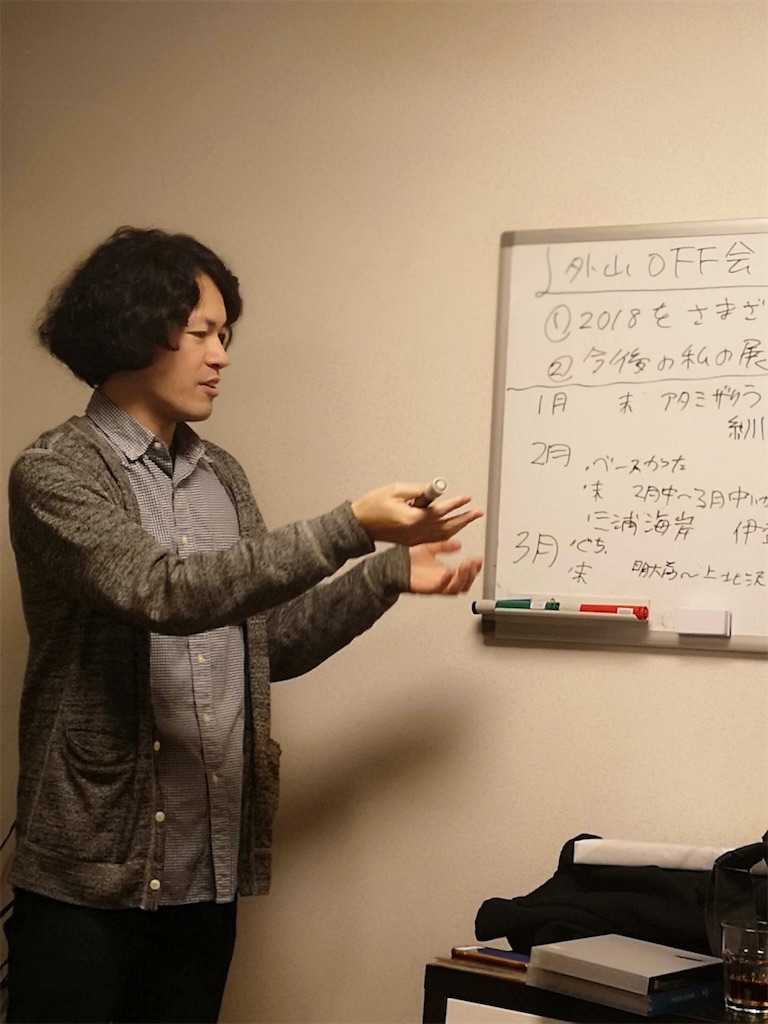 外山OFF会
① 2018をさまざ
② 今後の私の展
1月 末 アタミ
2月 ・ベースかった
末 2月中〜3月中
三浦海岸 伊
3月
末 明大前〜上北沢